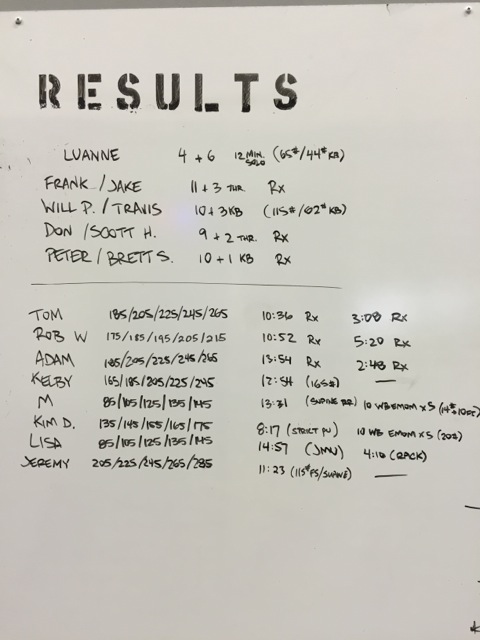 RESULTS
LUANNE 4 + 6 12 MIN. SOLO (65#/44# KB)
FRANK/JAKE 11 + 3 THR. Rx
WILL P./TRAVIS 10 + 3 KB (115#/62# KB)
DON/SCOTT H. 9 + 2 THR. Rx
PETER/BRETT S. 10 + 1 KB Rx
TOM 185/205/225/245/265 10:36 Rx 3:08 Rx
ROB W 175/185/195/205/215 10:52 Rx 5:20 Rx
ADAM 185/205/225/245/265 13:54 Rx 2:48 Rx
KELBY 165/185/205/225/245 12:54 (165#) —
M 85/105/125/135/145 13:31 (SUPINE RR) 10 WB EMOM x 5 (14# 10FT)
KIM D. 135/145/155/165/175 8:17 (STRICT PU) 10 WB EMOM x 5 (20#)
LISA 85/105/125/135/145 14:57 (JMU) 4:10 (RACK)
JEREMY 205/225/245/265/285 11:23 (115# FS/SUPINE) —